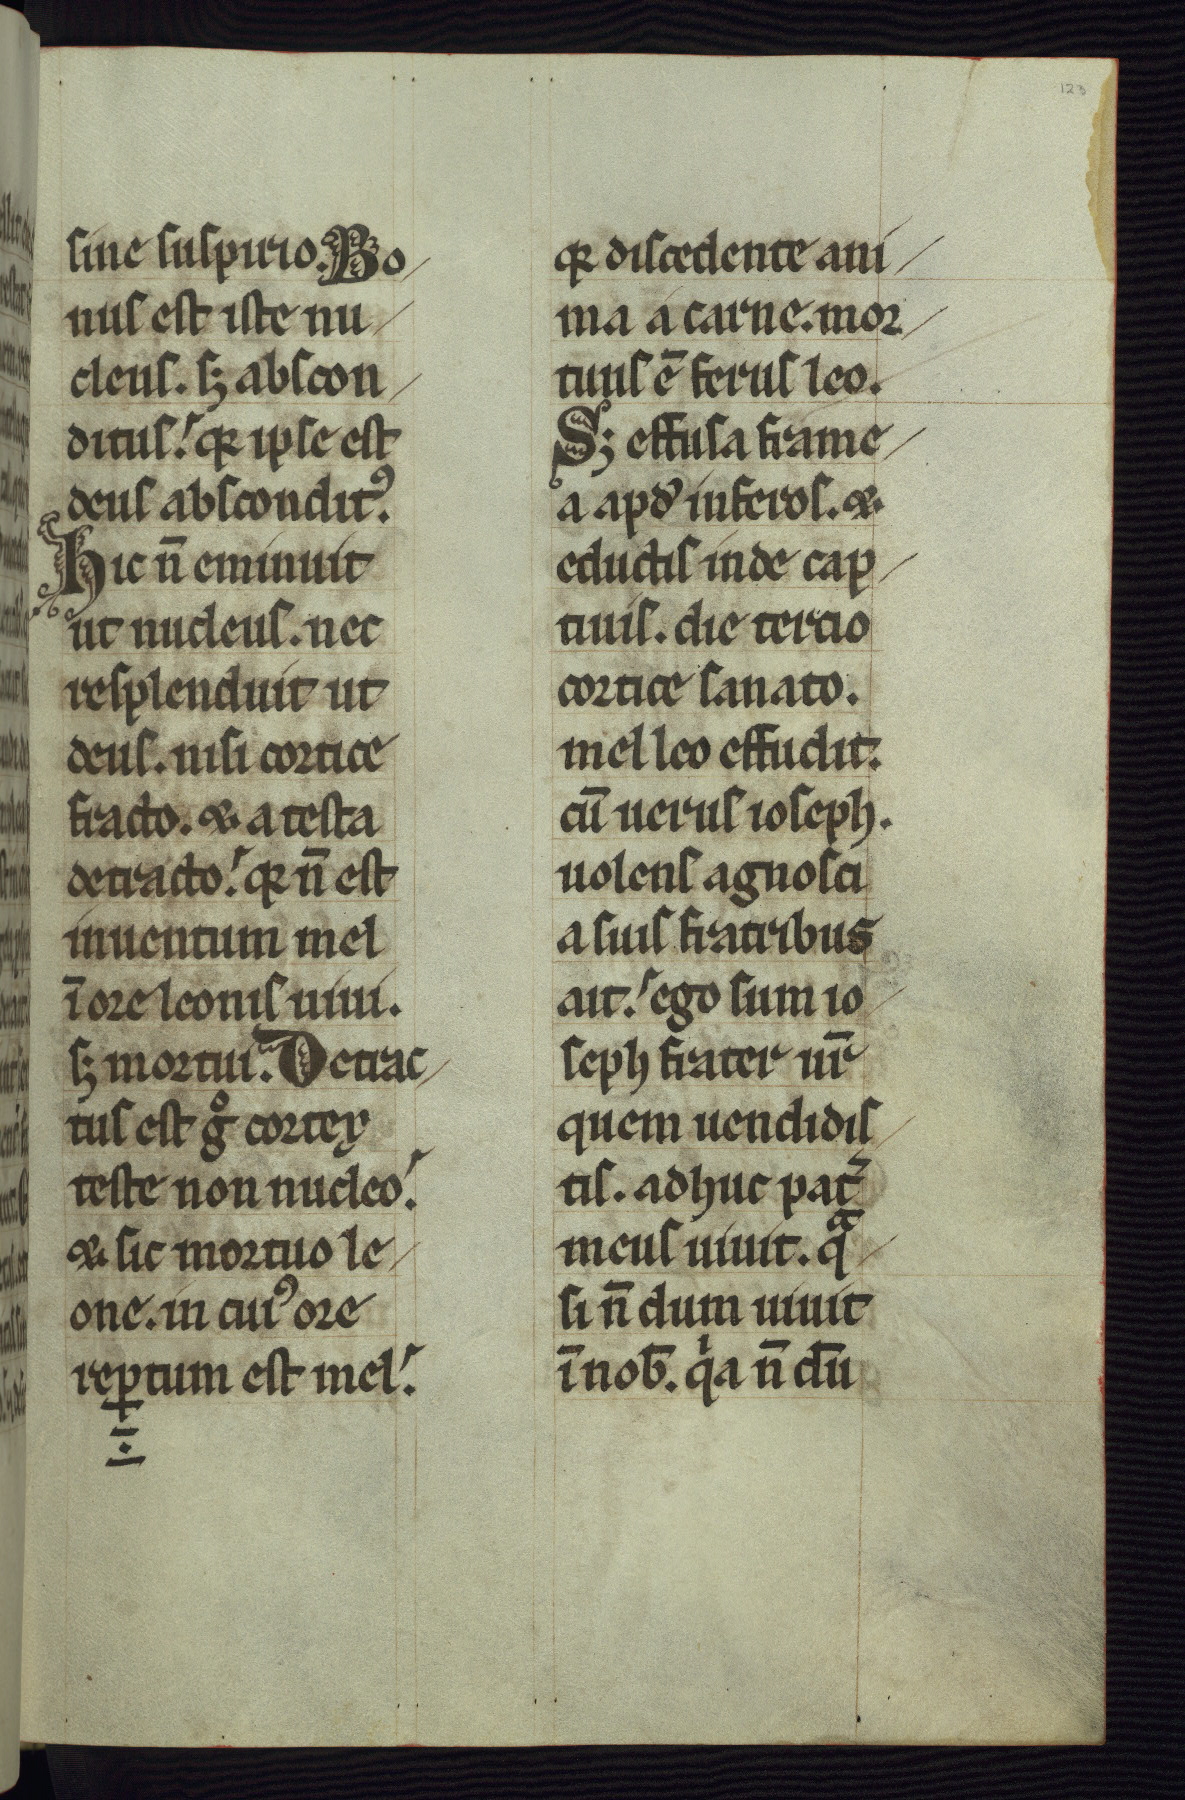 123
sine suspirio. Bo
nus est iste nu
cleus. sꝫ abscon
ditus! qꝛ ipse est
deus abscondit᷒.
Hic n̄ eminuit
ut nucleus. nec
resplenduit ut
deus. nisi cortice
fracto. & a testa
detracto! qꝛ n̄ est
inuentum mel
ī ore leonis uiui.
sꝫ mortui. Detrac
tus est gͦ cortex
teste non nucleo!
& sic mortuo le
one. in cui᷒ ore
reꝑtum est mel!
qꝛ discedente ani
ma a carne. mor
tuus ē ferus leo.
Sꝫ effusa frame
a apđ inferos. &
eductis inde cap
tiuis. die tercio
cortice sanato.
mel leo effudit.
cū uerus ioseph.
uolens agnosci
a suis fratribus
ait! ego sum io
seph frater ur̄
quem uendidis
tis. adhuc pat᷑
meus uiuit. qͣ
si n̄ dum uiuit
ī nob̄. qͥa n̄ dū